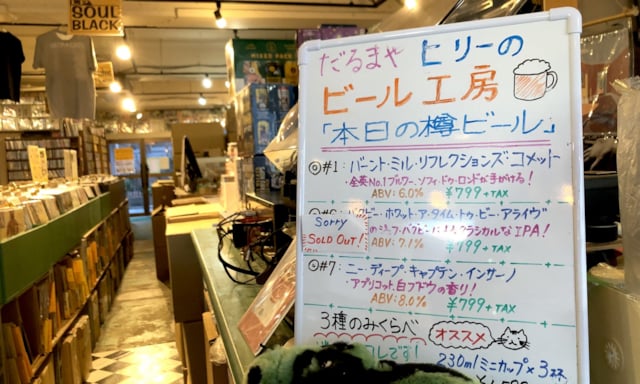 SOUL
BLACK
MIXED PACK
だるまや ヒリーの
ビール工房
「本日の樽ビール」
◎#1:バーント・ミル・リフレクションズ・コメット
・全英No.1ブルワー、ソフィ・ドゥ・ロンドが手がける!
ABV: 6.0% ¥799+TAX
ホワット・ア・タイム・トゥ・ビー・アライヴ
Sorry
SOLD OUT!
クラシカルなIPA!
ABV: 7.1% ¥799+TAX
◎#7: ニー・ディープ・キャプテン・インサーノ
・アプリコット、白ブドウの香り!
ABV: 8.0% ¥799+TAX
3種のみくらべ オススメ
です!
230ml ミニカップ×3